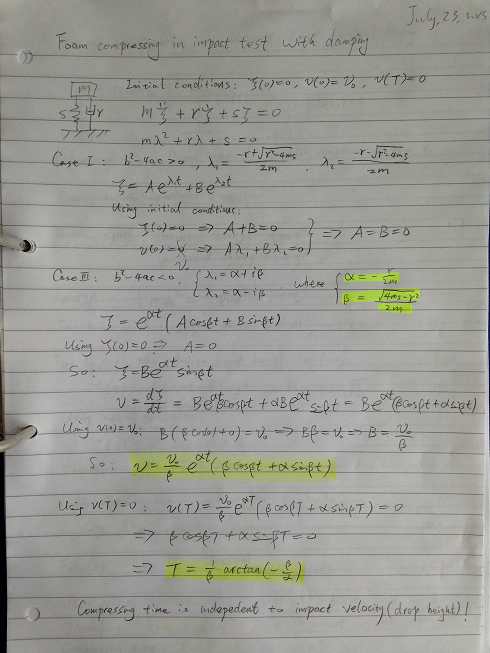 July, 23, 2015
Foam compressing in impact test with damping
m
s r
Initial conditions: ξ(0)=0, v(0)=v₀, v(T)=0
mξ̈ + rξ̇ + sξ = 0
mλ² + rλ + s = 0
Case I: b²-4ac>0, λ₁ = (-r+√(r²-4ms))/2m, λ₂ = (-r-√(r²-4ms))/2m
ξ = Ae^{λ₁t} + Be^{λ₂t}
Using initial conditions:
ξ(0)=0 => A+B=0
v(0)=v₀ => Aλ₁+Bλ₂=0 } => A=B=0
v₀
Case III: b²-4ac<0, { λ₁=α+iβ λ₂=α-iβ, where { α = -r/2m β = √(4ms-r²)/2m
ξ = e^{αt}(A cosβt + B sinβt)
Using ξ(0)=0 => A=0
So: ξ=Be^{αt} sinβt
v = dξ/dt = Be^{αt}βcosβt + αBe^{αt} sinβt = Be^{αt}(βcosβt+αsinβt)
Using v(0)=v₀: B(βcos(0)+0)=v₀ => Bβ=v₀ => B=v₀/β
So: v = v₀/β e^{αt}(βcosβt + α sinβt)
Using v(T)=0: v(T) = v₀/β e^{αT}(βcosβT + αsinβT) = 0
=> βcosβT + α sinβT = 0
=> T = 1/β arctan(-β/α)
Compressing time is indepedent to impact velocity (drop height)!